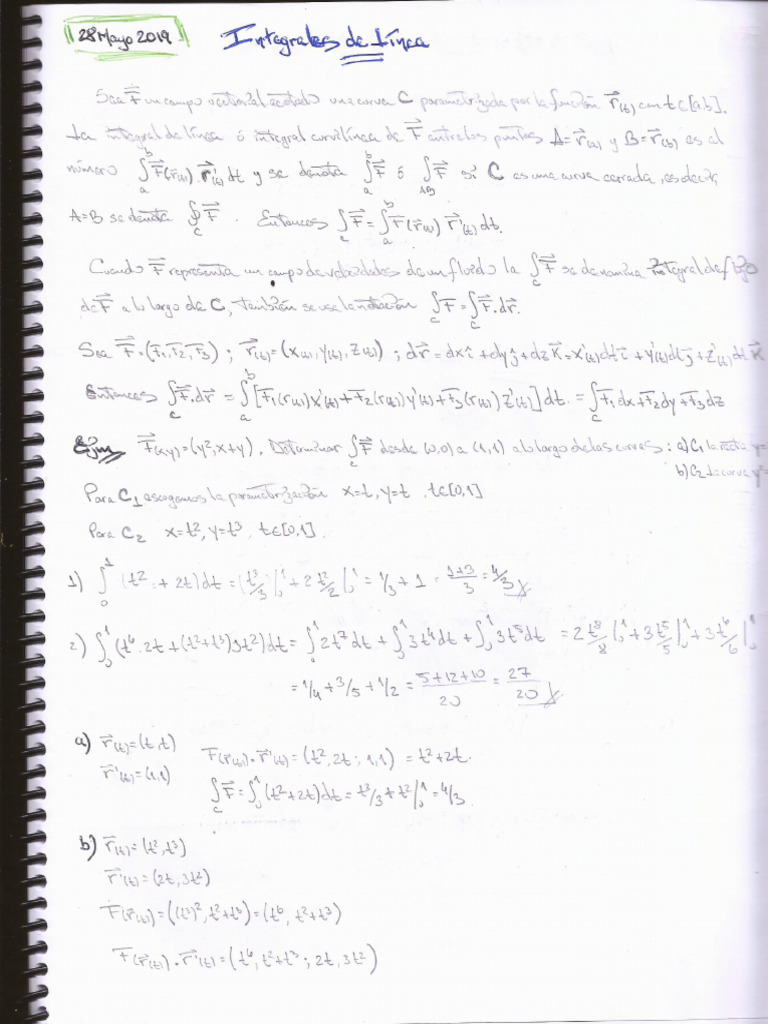 28 Mayo 2019
Integrales de Línea
Sea F⃗ un campo vectorial acotado una curva C parametrizada por la función r⃗(t) con t∈[a,b].
La integral de línea ó integral curvilínea de F⃗ entre los puntos A=r⃗(a) y B=r⃗(b) es al
número ∫ₐᵇ F⃗(r(t)) r⃗'(t) dt y se denota ∫ₐᵇ F⃗ ó ∫_AB F⃗ si C es una curva cerrada, es decir,
A=B se denota ∮_C F⃗. Entonces ∫_C F⃗ = ∫ₐᵇ F(r⃗(t)) r⃗'(t) dt.
Cuando F⃗ representa un campo de velocidades de un fluido la ∫_C F⃗ se denomina Integral de flujo
de F⃗ a lo largo de C, también se usa la notación ∫_C F = ∫_C F⃗·dr⃗.
Sea F⃗=(F₁,F₂,F₃) ; r⃗(t)=(x(t),y(t),z(t)) ; dr⃗=dx i+dy j+dz k=x'(t)dt i+y'(t)dt j+z'(t)dt k
Entonces ∫_C F⃗·dr⃗ = ∫ₐᵇ [F₁(r(t))x'(t)+F₂(r(t))y'(t)+F₃(r(t))z'(t)]dt = ∫_C F₁dx+F₂dy+F₃dz
Ejm F⃗(x,y)=(y²,x+y). Determinar ∫_C F⃗ desde (0,0) a (1,1) a lo largo de las curvas : a) C₁ la recta y=
b) C₂ la curva y²
Para C₁ escogamos la parametrización x=t, y=t t∈[0,1]
Para C₂ x=t², y=t³ t∈[0,1].
1) ∫₀¹ (t² + 2t)dt = (t³/3|₀¹ + 2 t²/2|₀¹ = 1/3 + 1 = (1+3)/3 = 4/3
2) ∫₀¹ (t⁶·2t+(t²+t³)3t²)dt = ∫₀¹ 2t⁷dt + ∫₀¹ 3t⁴dt + ∫₀¹ 3t⁵dt = 2t⁸/8|₀¹ + 3t⁵/5|₀¹ + 3t⁶/6|₀¹
= 1/4 + 3/5 + 1/2 = (5+12+10)/20 = 27/20
a) r⃗(t)=(t,t) F(r⃗(t))·r⃗'(t)=(t²,2t;1,1) = t²+2t.
r⃗'(t)=(1,1)
∫_C F⃗ = ∫₀¹ (t²+2t)dt = t³/3 + t²|₀¹ = 4/3
b) r⃗(t)=(t²,t³)
r⃗'(t)=(2t,3t²)
F(r⃗(t))=((t³)²,t²+t³)=(t⁶, t²+t³)
F(r⃗(t))·r⃗'(t)=(t⁶,t²+t³;2t,3t²)